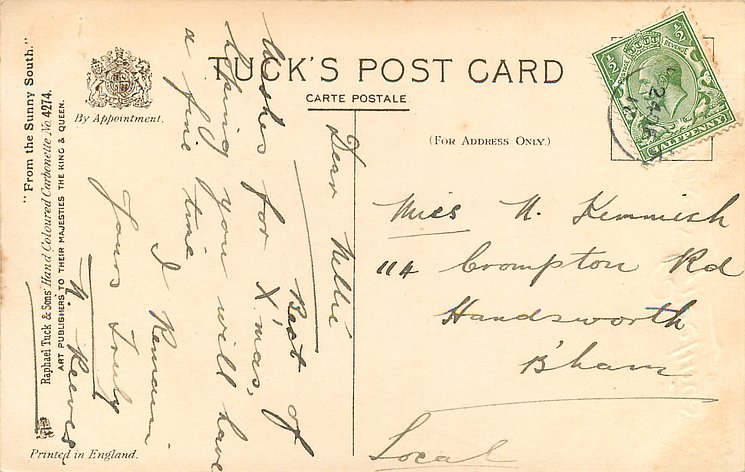 TUCK'S POST CARD
CARTE POSTALE
By Appointment.
(FOR ADDRESS ONLY.)
"From the Sunny South."
Raphael Tuck & Sons' Hand Coloured Carbonette No. 4274.
ART PUBLISHERS TO THEIR MAJESTIES THE KING & QUEEN.
Printed in England.
½ ½
POSTAGE REVENUE
HALFPENNY
24 DE
Dear Nellie
Best of
Wishes for X'mas,
hoping you will have
a fine time
I Remain
Yours Truly
N. Reeves
Miss N. Kemmish
114 Crompton Rd
Handsworth
B'ham
Local